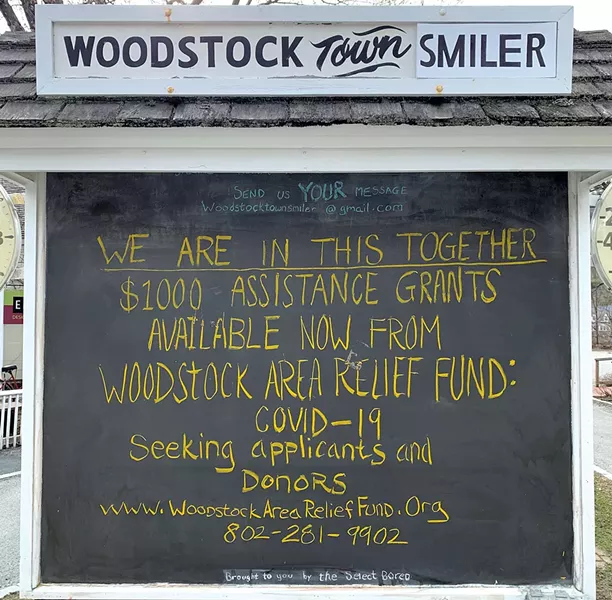 WOODSTOCK Town SMILER
SEND US YOUR MESSAGE
Woodstocktownsmiler @gmail.com
WE ARE IN THIS TOGETHER
$1000 ASSISTANCE GRANTS
AVAILABLE NOW FROM
WOODSTOCK AREA RELIEF FUND:
COVID-19
Seeking applicants and
DONORS
www.WoodstockAreaReliefFund.Org
802-281-9902
Brought to you by the Select Bored